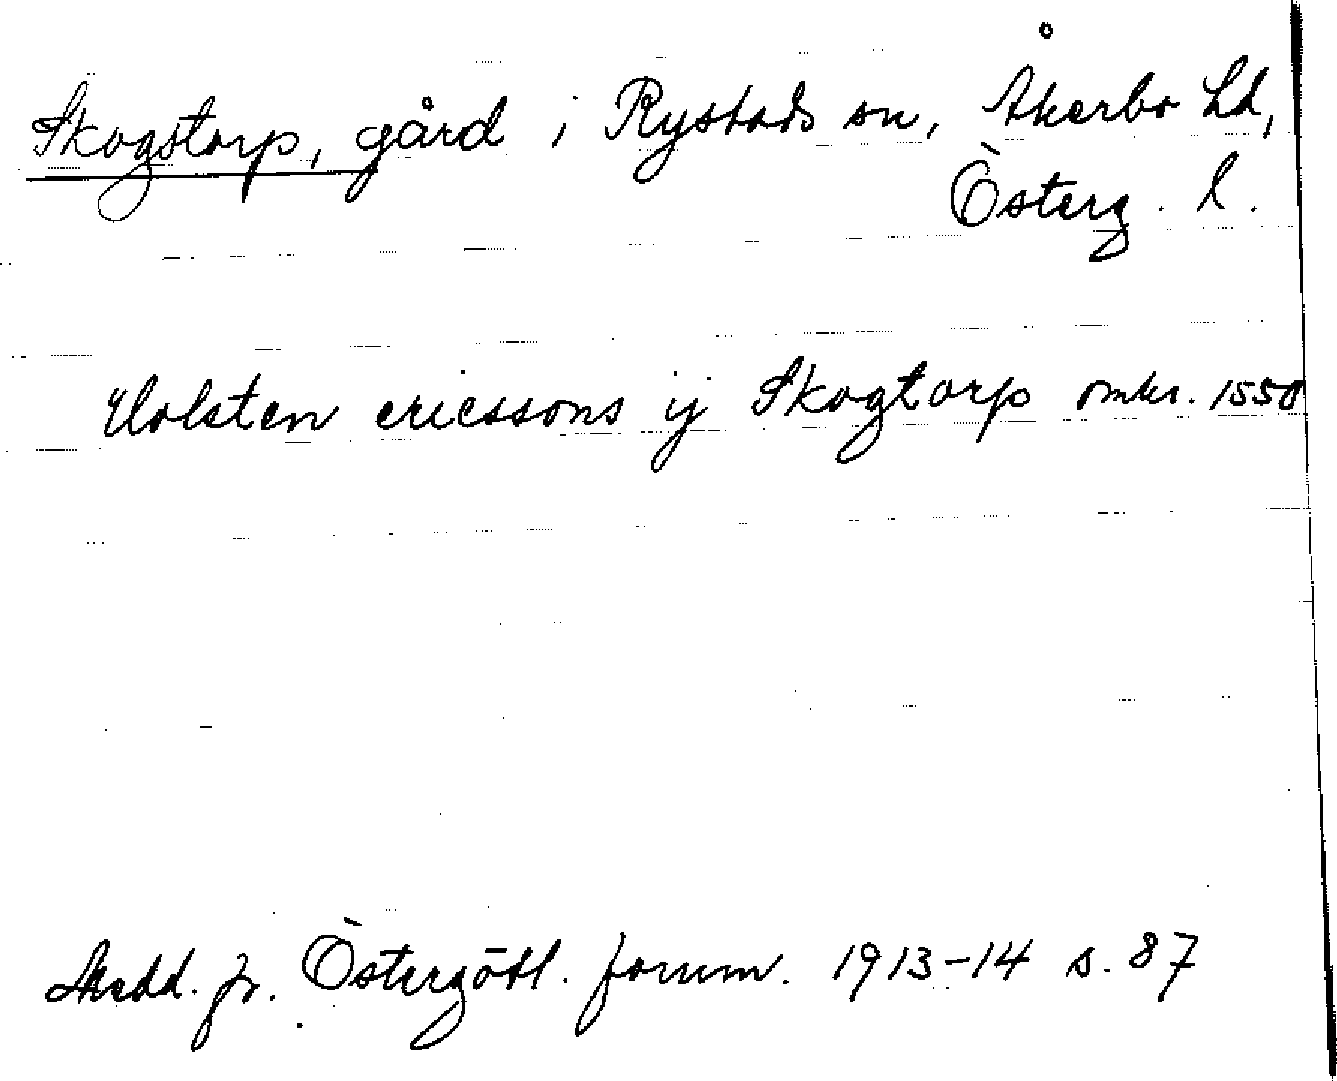 Skogstorp, gård i Rystads sn, Åkerbo hd,
Österg. l.
Holsten ericssons ij Skogtorp omkr. 1550
Medd. fr. Östergötl. fornm. 1913-14 s. 87